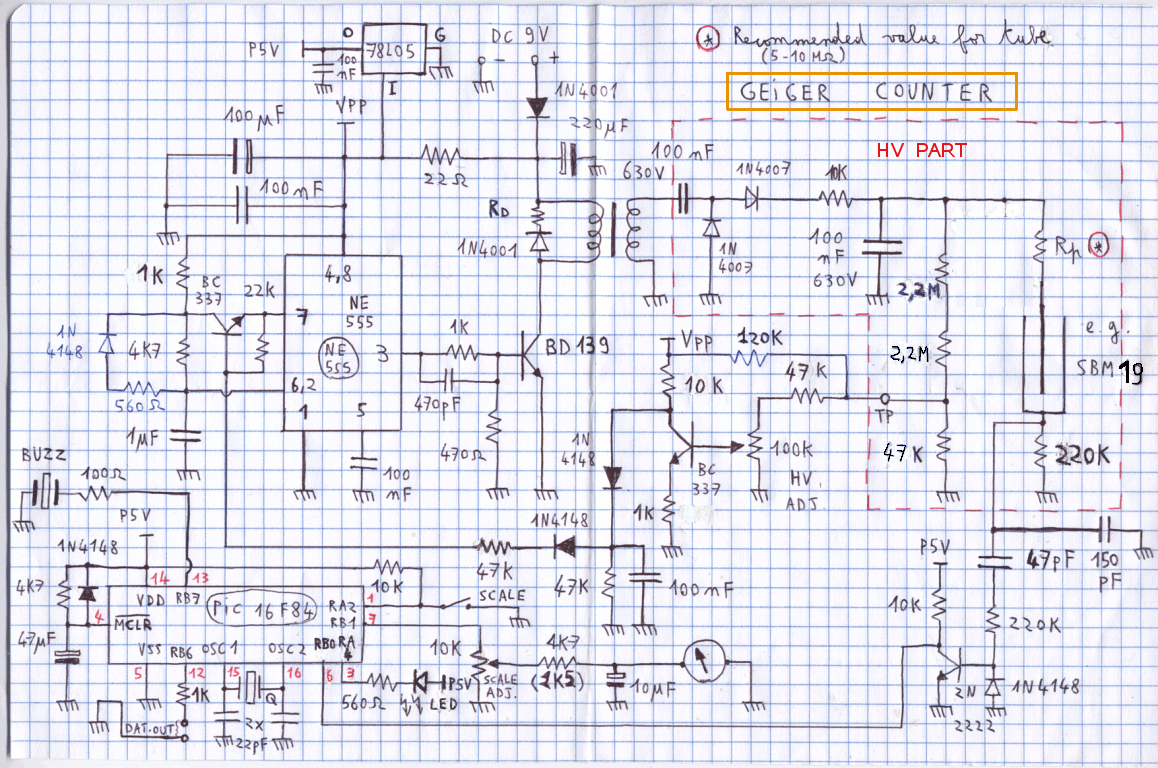 P5V
O
78L05
G
100
nF
I
VPP
DC 9V
-
+
1N4001
* Recommended value for tube.
(5-10 MΩ)
GEiGER COUNTER
HV PART
100µF
100nF
22Ω
220µF
630V
100nF
1N4007
10K
RD
1N4001
1N
4007
100
nF
630V
Rp *
2,2M
2,2M
e.g.
SBM 19
1K
BC
337
22K
4,8
NE
555
NE
555
7
3
6,2
1
5
1N
4148
4K7
560Ω
1µF
1K
BD 139
470pF
470Ω
100
nF
VPP
120K
10K
47K
TP
100K
HV
ADJ.
47K
220K
1N
4148
BC
337
1K
1N4148
47K
47K
100nF
BUZZ
100Ω
P5V
1N4148
4K7
47µF
14
13
VDD
RB7
PiC 16F84
RA2
RB1
1
7
4
MCLR
VSS
RB6
OSC1
OSC2
RB0
RA
4
5
12
15
16
6
3
10K
SCALE
10K
SCALE
ADJ.
4K7
(2K5)
10µF
1K
Q
2X
22pF
DAT.OUT
560Ω
LED
P5V
P5V
10K
47pF
150
pF
220K
1N4148
2N
2222